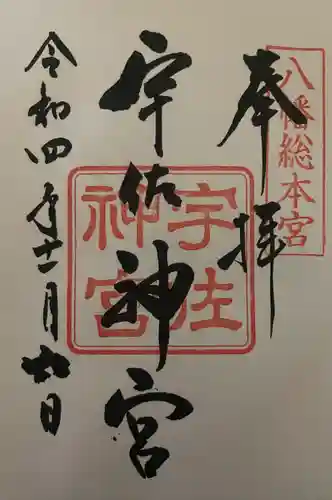 八幡総本宮
奉拝
宇佐神宮
宇佐
神宮
令和四年十一月六日